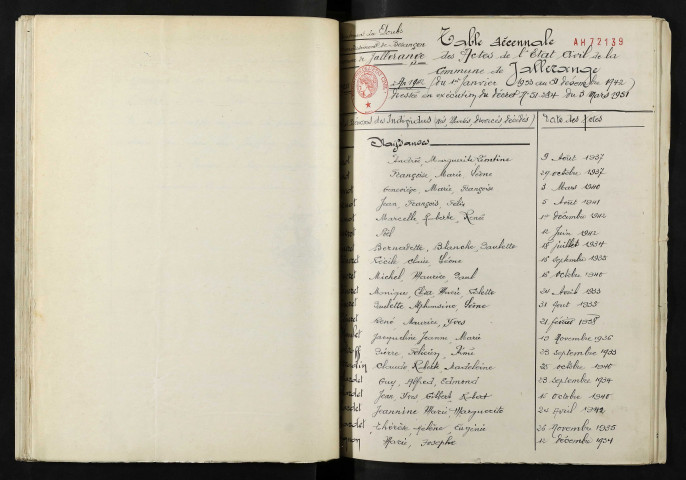 du Doubs
Table décennale
AH 72139
de Besançon
des Actes de l'Etat Civil de la
de Jallerange
Commune de Jallerange
(du 1er Janvier 1933 au 31 décembre 1942)
Dressée en exécution du décret N° 51-284 du 3 Mars 1951
des Individus (Nés, Mariés, Divorcés, Décédés)
Date des Actes
Naissances
Andrée, Marguerite Léontine 9 Août 1937
Françoise, Marie 29 octobre 1937
Geneviève, Marie, Françoise 3 Mars 1940
Jean, François, Félix 5 Août 1941
Marcelle, René 1er décembre 1942
Noël 12 Juin 1942
Bernadette, Blanche, Paulette 18 juillet 1934
Cécile 15 septembre 1933
Michel, Maurice, Paul 15 Octobre 1940
Monique, Marie, Colette 24 Avril 1933
Paulette Alphonsine 31 Août 1933
René, Maurice, Yves 21 février 1938
Jacqueline Jeanne, Marie 10 Novembre 1936
Pierre, Félicien 23 Septembre 1933
Claude Madeleine 25 octobre 1940
Guy, Alfred, Edmond 23 Septembre 1934
Jean, Yves Gilbert, Robert 15 Octobre 1940
Jeannine Marie-Marguerite 24 Avril 1942
Thérèse Hélène Eugénie 26 Novembre 1935
Marie, Josèphe 12 décembre 1934